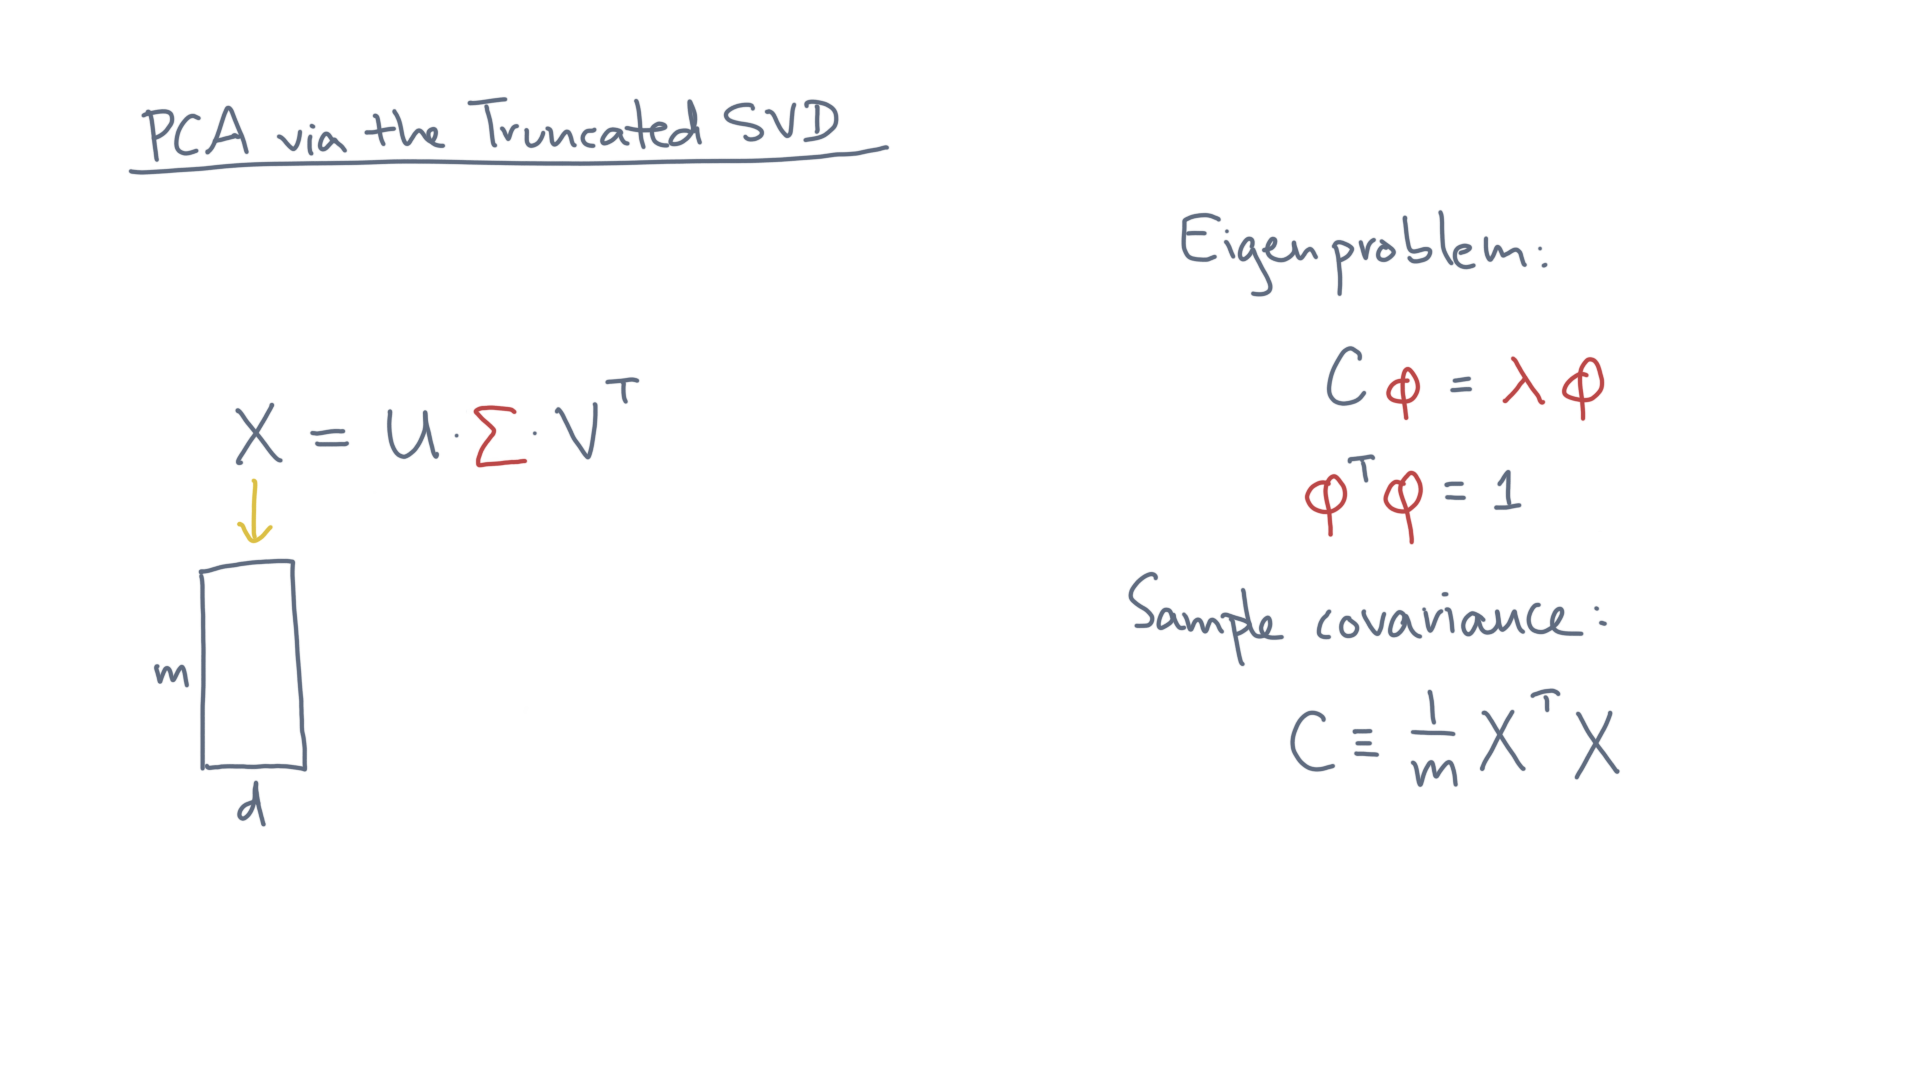 PCA via the Truncated SVD
X = U · Σ · Vᵀ
m
d
Eigenproblem:
C φ = λ φ
φᵀφ = 1
Sample covariance:
C ≡ 1/m Xᵀ X